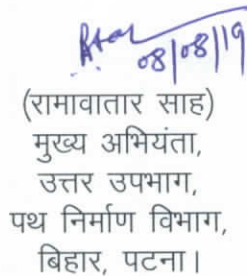 08/08/19
(रामावतार साह)
मुख्य अभियंता,
उत्तर उपभाग,
पथ निर्माण विभाग,
बिहार, पटना।